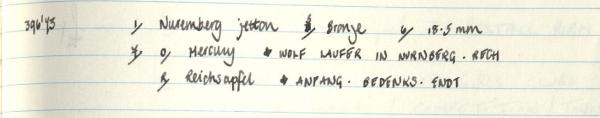 396'45 1, Nuremberg jetton 3, Bronze 6, 18.5 mm
7, O, Mercury WOLF LAUFER IN NURNBERG. RECH
R, Reichsapfel ANFANG. BEDENKS. ENDT